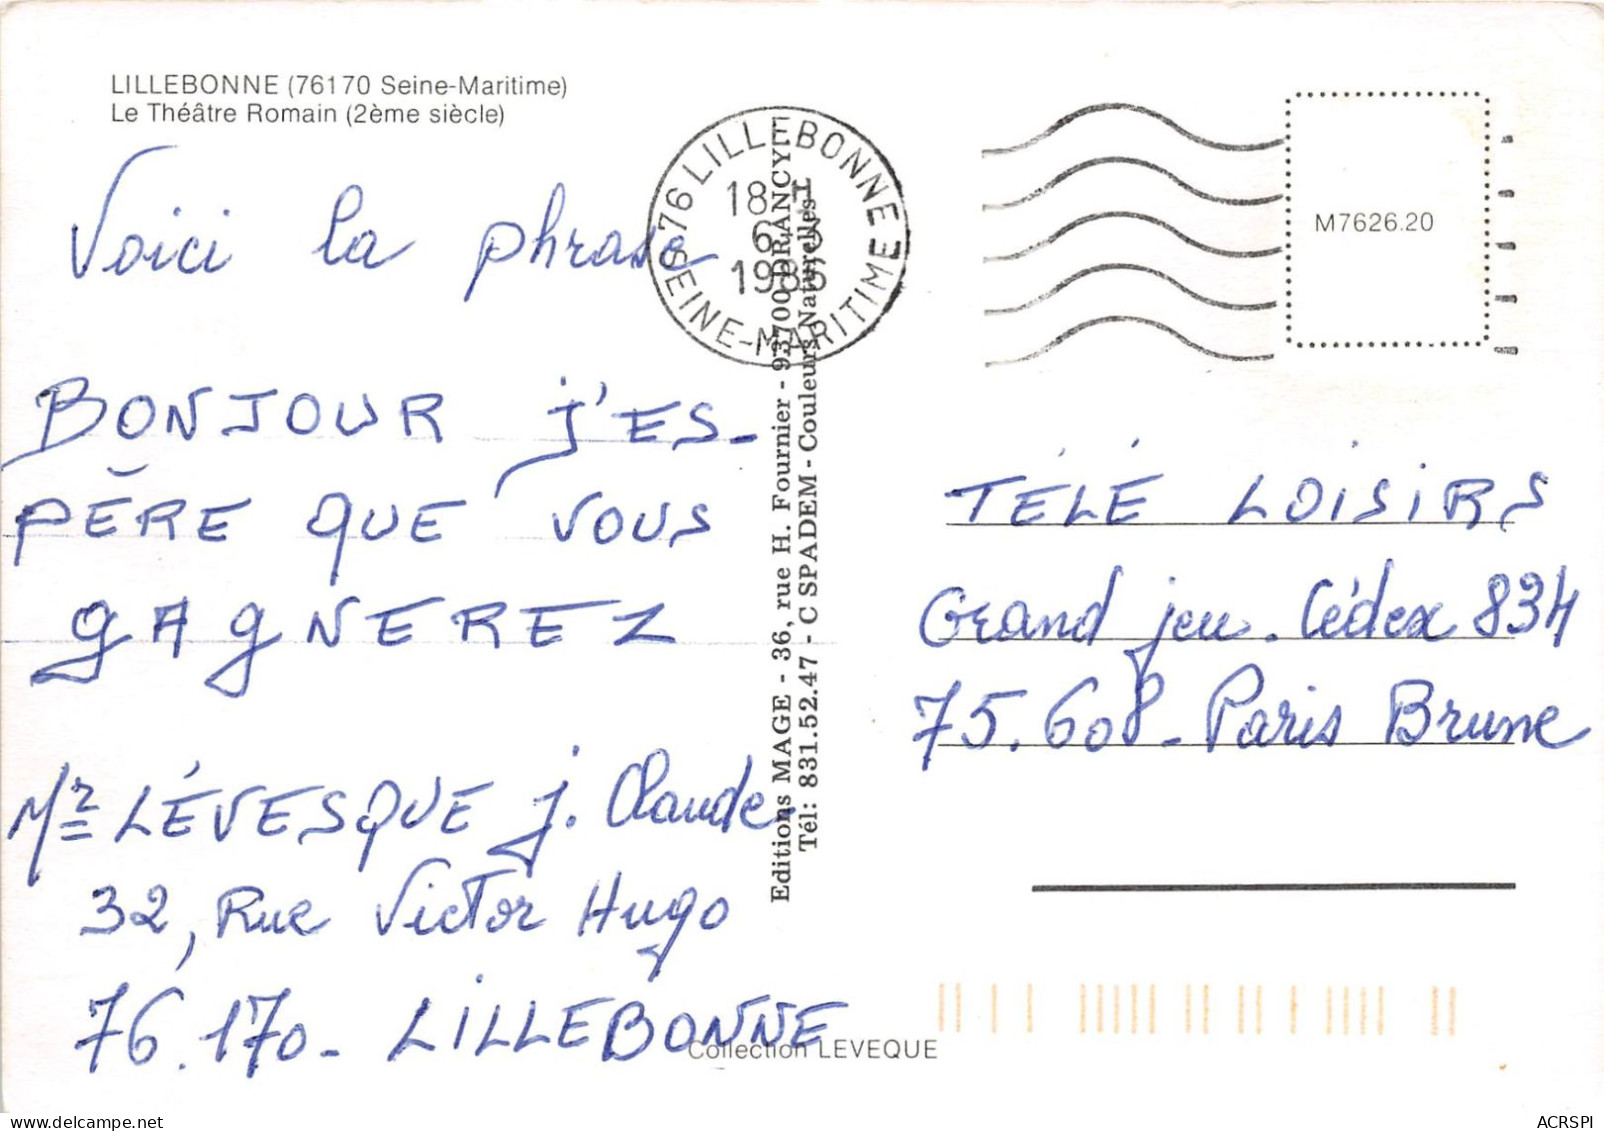 LILLEBONNE (76170 Seine-Maritime)
Le Théâtre Romain (2ème siècle)
Voici la phrase
BONJOUR j'ES-
PÈRE QUE VOUS
GAGNEREZ
Mr LÉVESQUE J. Claude
32, Rue Victor Hugo
76.170 - LILLEBONNE
Collection LEVEQUE
Editions MAGE - 36, rue H. Fournier - 93700 DRANCY
Tél: 831.52.47 - C SPADEM - Couleurs Naturelles
76 LILLEBONNE
18 H
6
SEINE-MARITIME
M7626.20
TÉLÉ LOISIRS
Grand jeu. Cédex 834
75.608 - Paris Brune
ACRSPI
delcampe.net